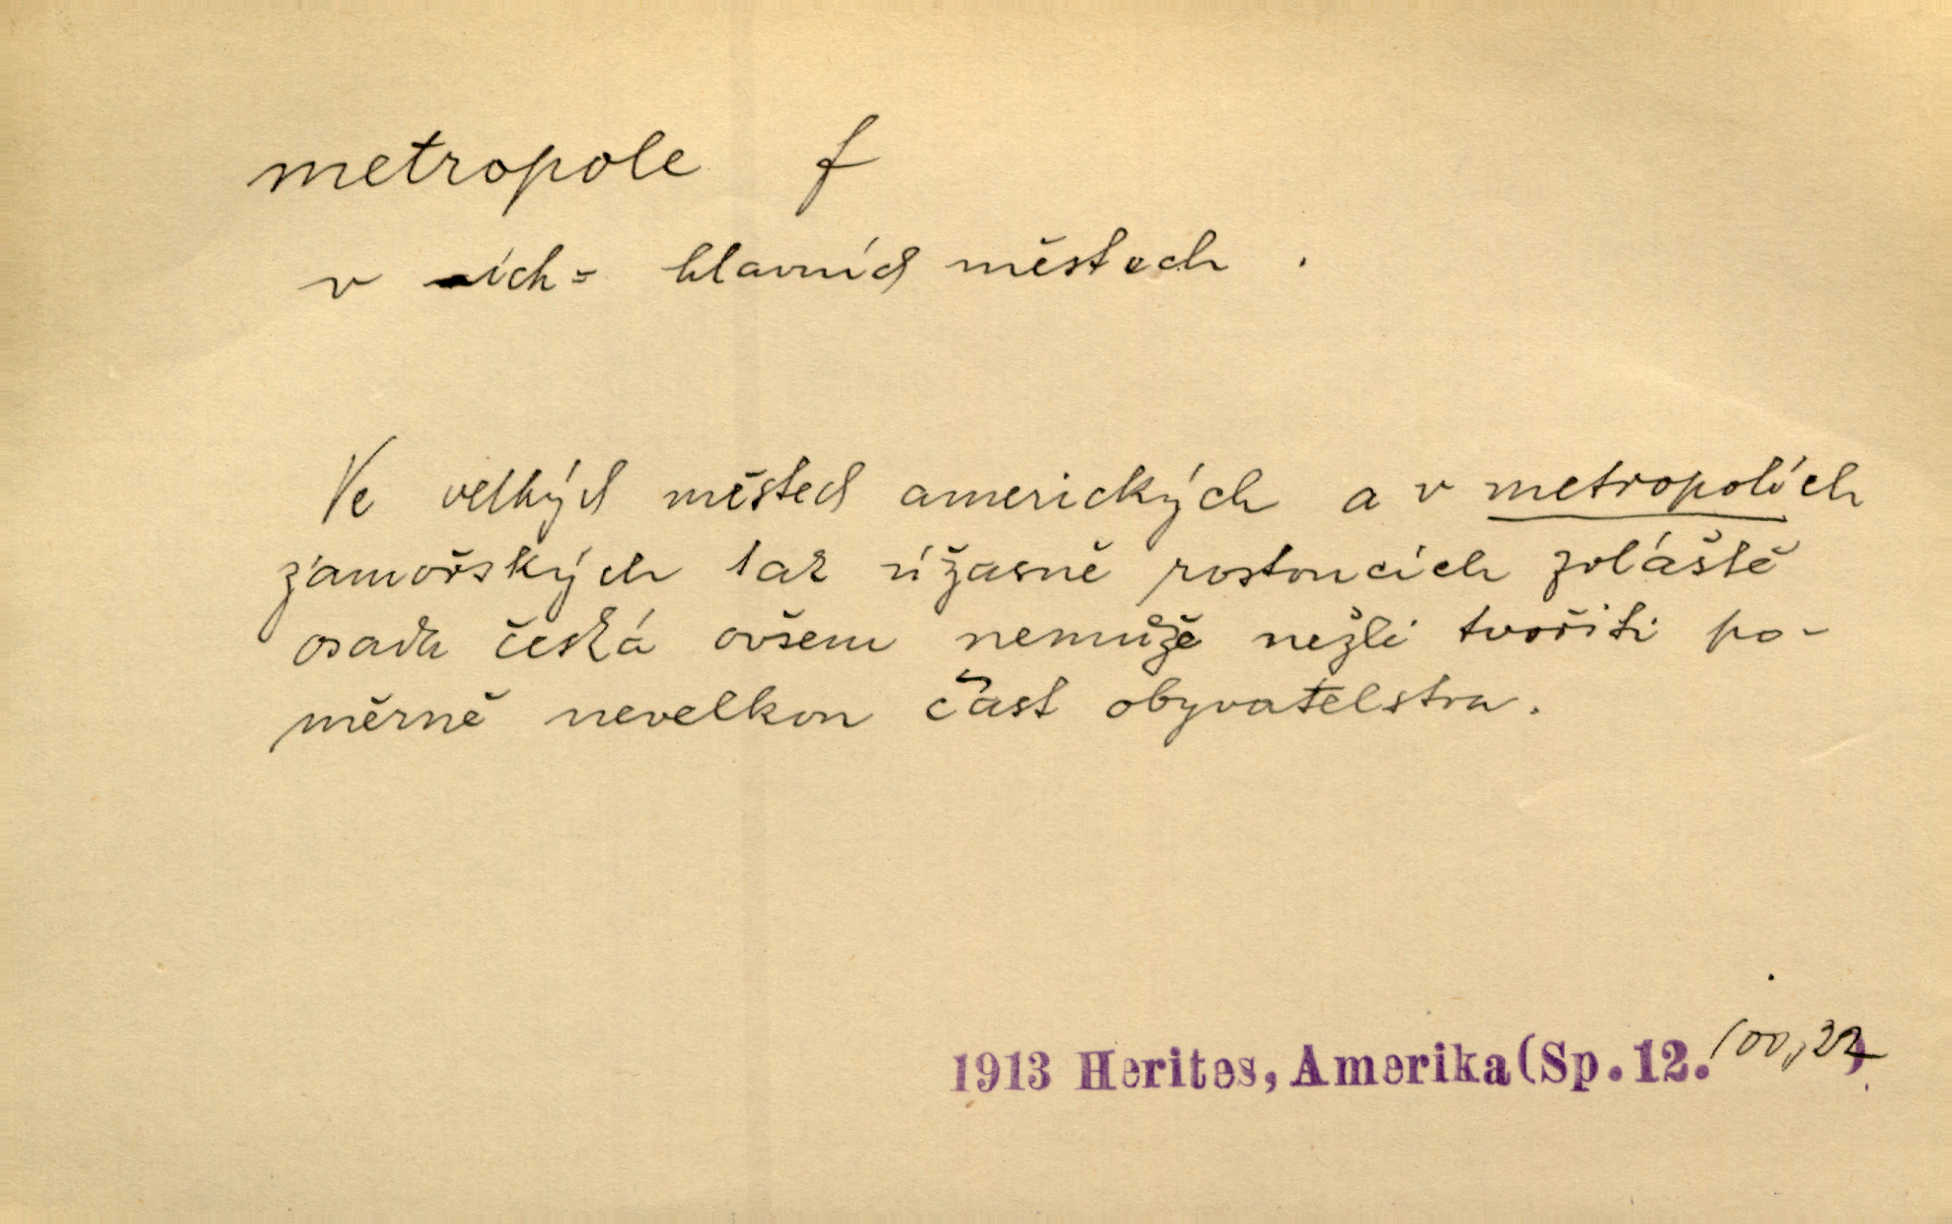 metropole f
v -ích = hlavních městech .
Ve velkých městech amerických a v metropolích
zámořských tak úžasně rostoucích zvláště
osada česká ovšem nemůže nežli tvořiti po-
měrně nevelkou část obyvatelstva.
1913 Herites, Amerika (Sp. 12. 100, 22)